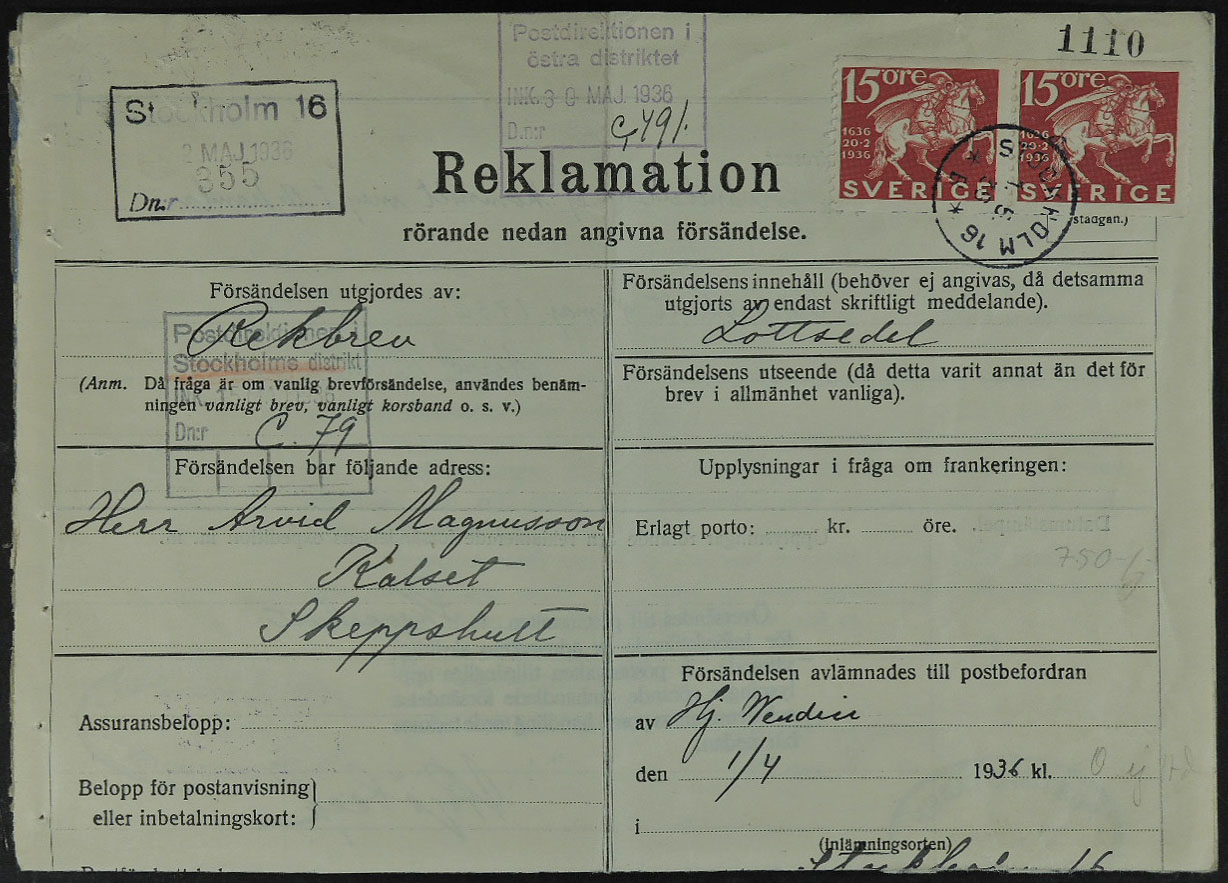 1110
Postdirektionen i
östra distriktet
INK. 30 MAJ. 1936
D.n:r C 491.
Stockholm 16
2 MAJ 1936
355
Dn.r
15 ÖRE
1636
20-2
1936
SVERIGE
15 ÖRE
1636
20-2
1936
SVERIGE
STOCKHOLM 16
Reklamation
rörande nedan angivna försändelse.
Försändelsen utgjordes av:
Rekbrev
Postdirektionen i
Stockholms distrikt
(Anm. Då fråga är om vanlig brevförsändelse, användes benäm-
ningen vanligt brev, vanligt korsband o. s. v.)
Dn:r C. 79
Försändelsen bar följande adress:
Herr Arvid Magnusson
Kalset
Skeppshult
Assuransbelopp:
Belopp för postanvisning
eller inbetalningskort:
Försändelsens innehåll (behöver ej angivas, då detsamma
utgjorts av endast skriftligt meddelande).
Lottsedel
Försändelsens utseende (då detta varit annat än det för
brev i allmänhet vanliga).
Upplysningar i fråga om frankeringen:
Erlagt porto: kr. öre.
750-
Försändelsen avlämnades till postbefordran
av Hj. Wendin
den 1/4 1936 kl.
i
(Inlämningsorten)
Stockholm 16